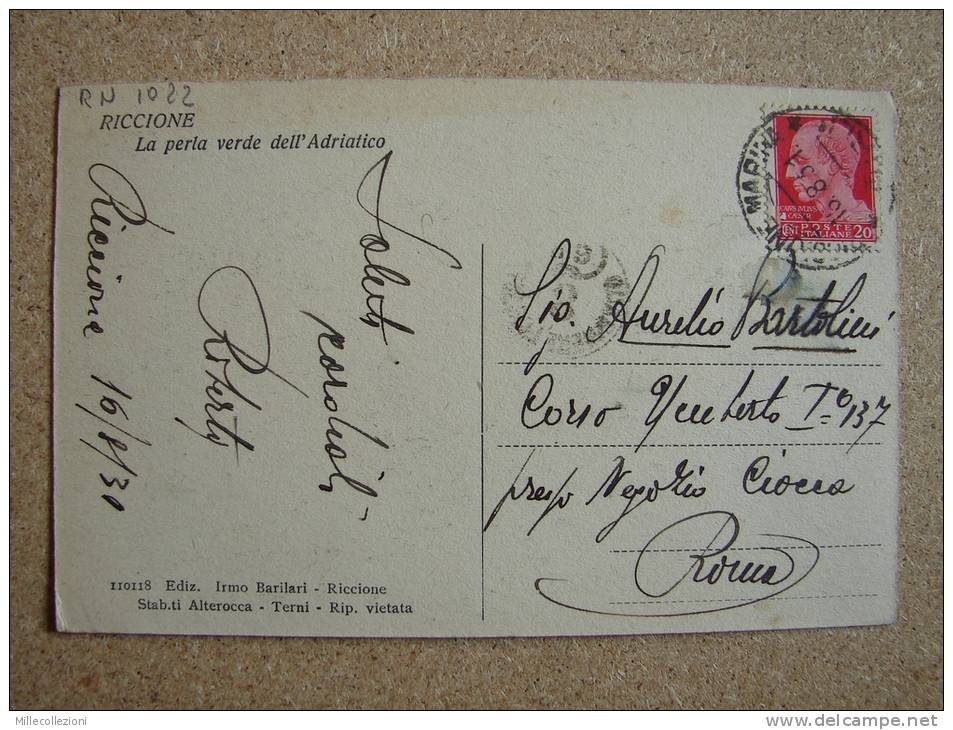 RN 1022
RICCIONE
La perla verde dell'Adriatico
Riccione 16/8/30
Saluti
cordiali
Roberto
110118 Ediz. Irmo Barilari - Riccione
Stab.ti Alterocca - Terni - Rip. vietata
MARINE
POSTE
ITALIANE 20
Sig. Aurelio Bartolini
Corso Umberto I° 137
presso Negozio Ciocca
Roma
Millecollezioni
http://www.delcampe.net